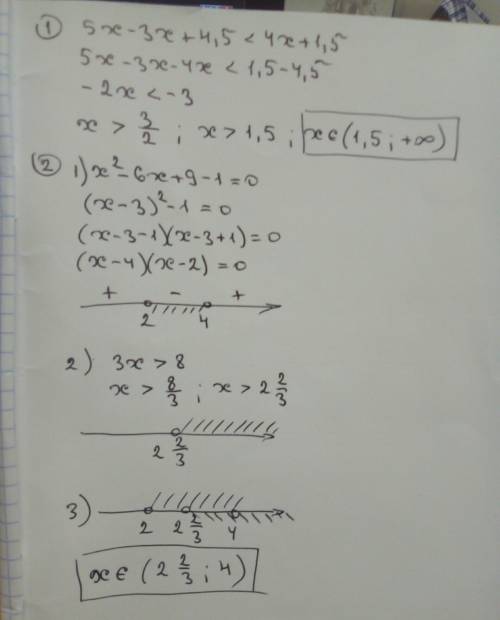 ① 5x-3x+4,5 < 4x+1,5
5x-3x-4x < 1,5-4,5
-2x < -3
x > 3/2 ; x > 1,5 ; x∈(1,5 ; +∞)
② 1) x²-6x+9-1=0
(x-3)²-1=0
(x-3-1)(x-3+1)=0
(x-4)(x-2)=0
+ - +
2 4
2) 3x > 8
x > 8/3 ; x > 2 2/3
2 2/3
3)
2 2 2/3 4
x∈ (2 2/3 ; 4)